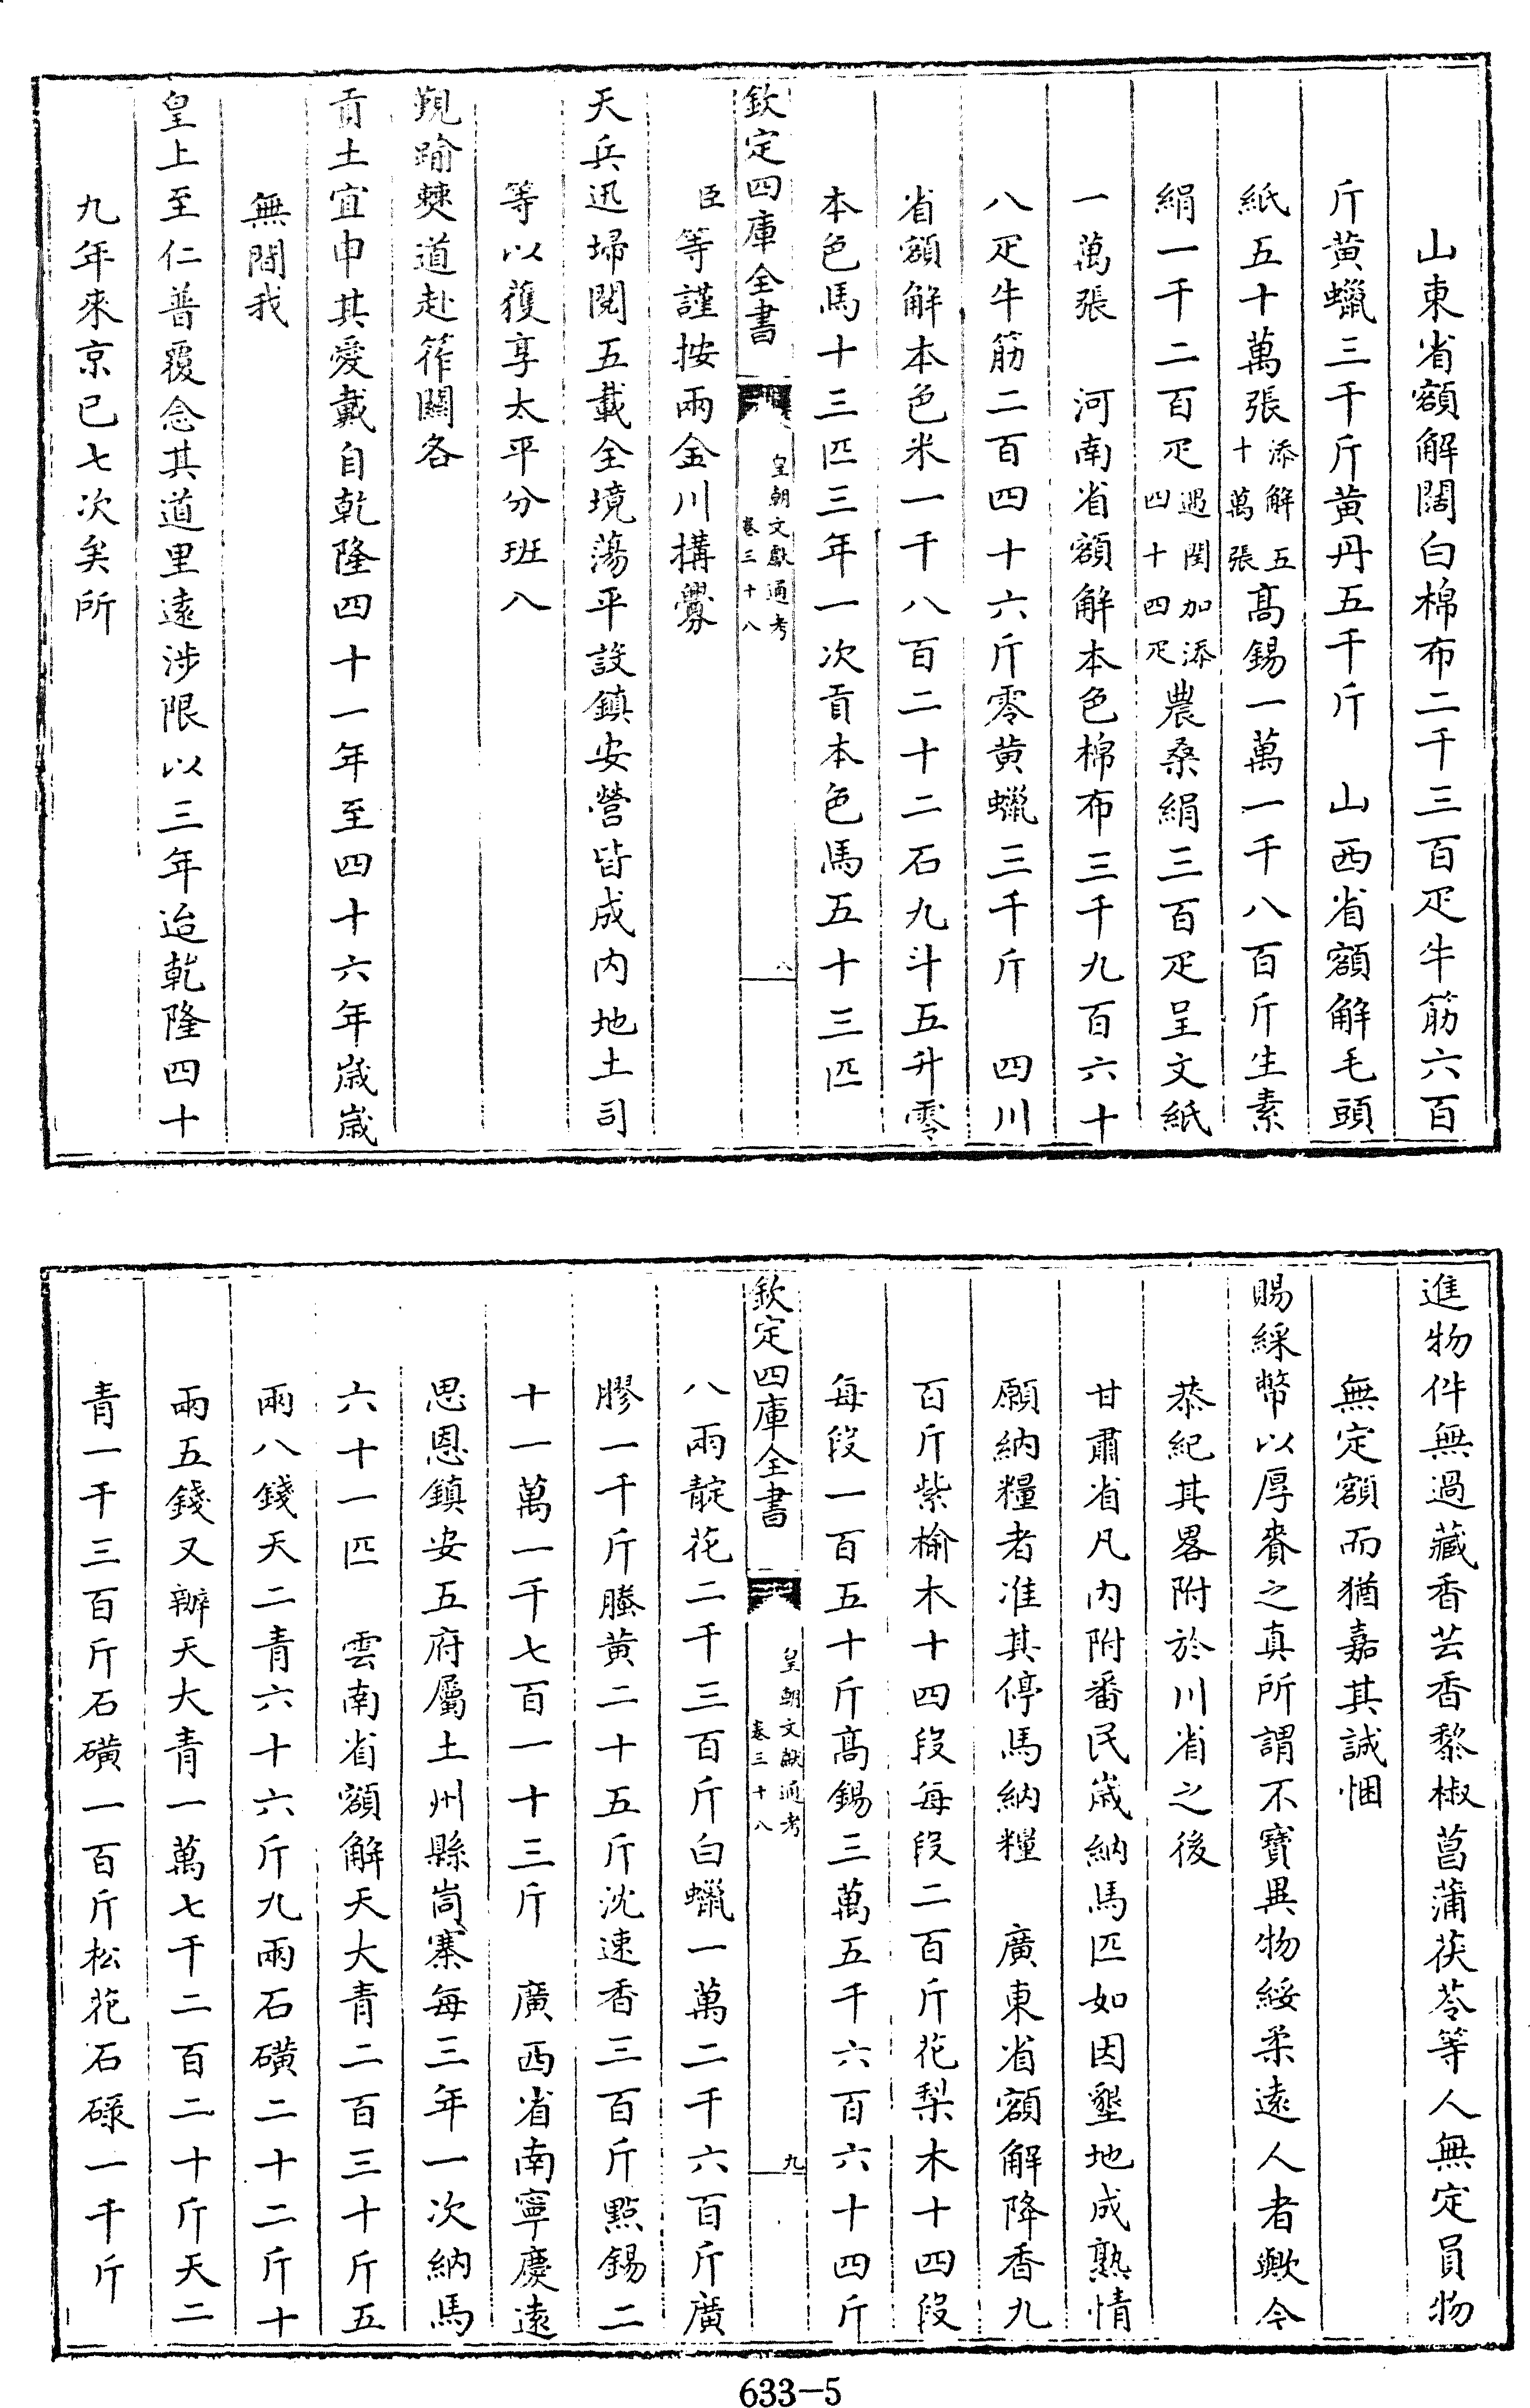 山東省額解闊白棉布二千三百疋牛筋六百
斤黃蠟三千斤黃丹五千斤　山西省額解毛頭
紙五十萬張添解五十萬張高錫一萬一千八百斤生素
絹一千二百疋遇閏加添四十四疋農桑絹三百疋呈文紙
一萬張　河南省額解本色棉布三千九百六十
八疋牛筋二百四十六斤零黃蠟三千斤　四川
省額解本色米一千八百二十二石九斗五升零
本色馬十三匹三年一次貢本色馬五十三匹
欽定四庫全書
皇朝文獻通考
卷三十八
八
臣等謹按兩金川構釁
天兵迅埽閱五載全境蕩平設鎮安營皆成內地土司
等以獲享太平分班入
覲踰僰道赴筰關各
貢土宜申其愛戴自乾隆四十一年至四十六年歲歲
無間我
皇上至仁普覆念其道里遠涉限以三年迨乾隆四十
九年來京已七次矣所
進物件無過藏香芸香藜椒菖蒲茯苓等人無定員物
無定額而猶嘉其誠悃
賜綵幣以厚賚之真所謂不寶異物綏柔遠人者歟今
恭紀其畧附於川省之後
甘肅省凡內附番民歲納馬匹如因墾地成熟情
願納糧者准其停馬納糧　廣東省額解降香九
百斤紫榆木十四段每段二百斤花梨木十四段
每段一百五十斤高錫三萬五千六百六十四斤
欽定四庫全書
皇朝文獻通考
卷三十八
九
八兩靛花二千三百斤白蠟一萬二千六百斤廣
膠一千斤螣黃二十五斤沈速香三百斤點錫二
十一萬一千七百一十三斤　廣西省南寧慶遠
思恩鎮安五府屬土州縣峝寨每三年一次納馬
六十一匹　雲南省額解天大青二百三十斤五
兩八錢天二青六十六斤九兩石磺二十二斤十
兩五錢又辦天大青一萬七千二百二十斤天二
青一千三百斤石磺一百斤松花石碌一千斤
633-5